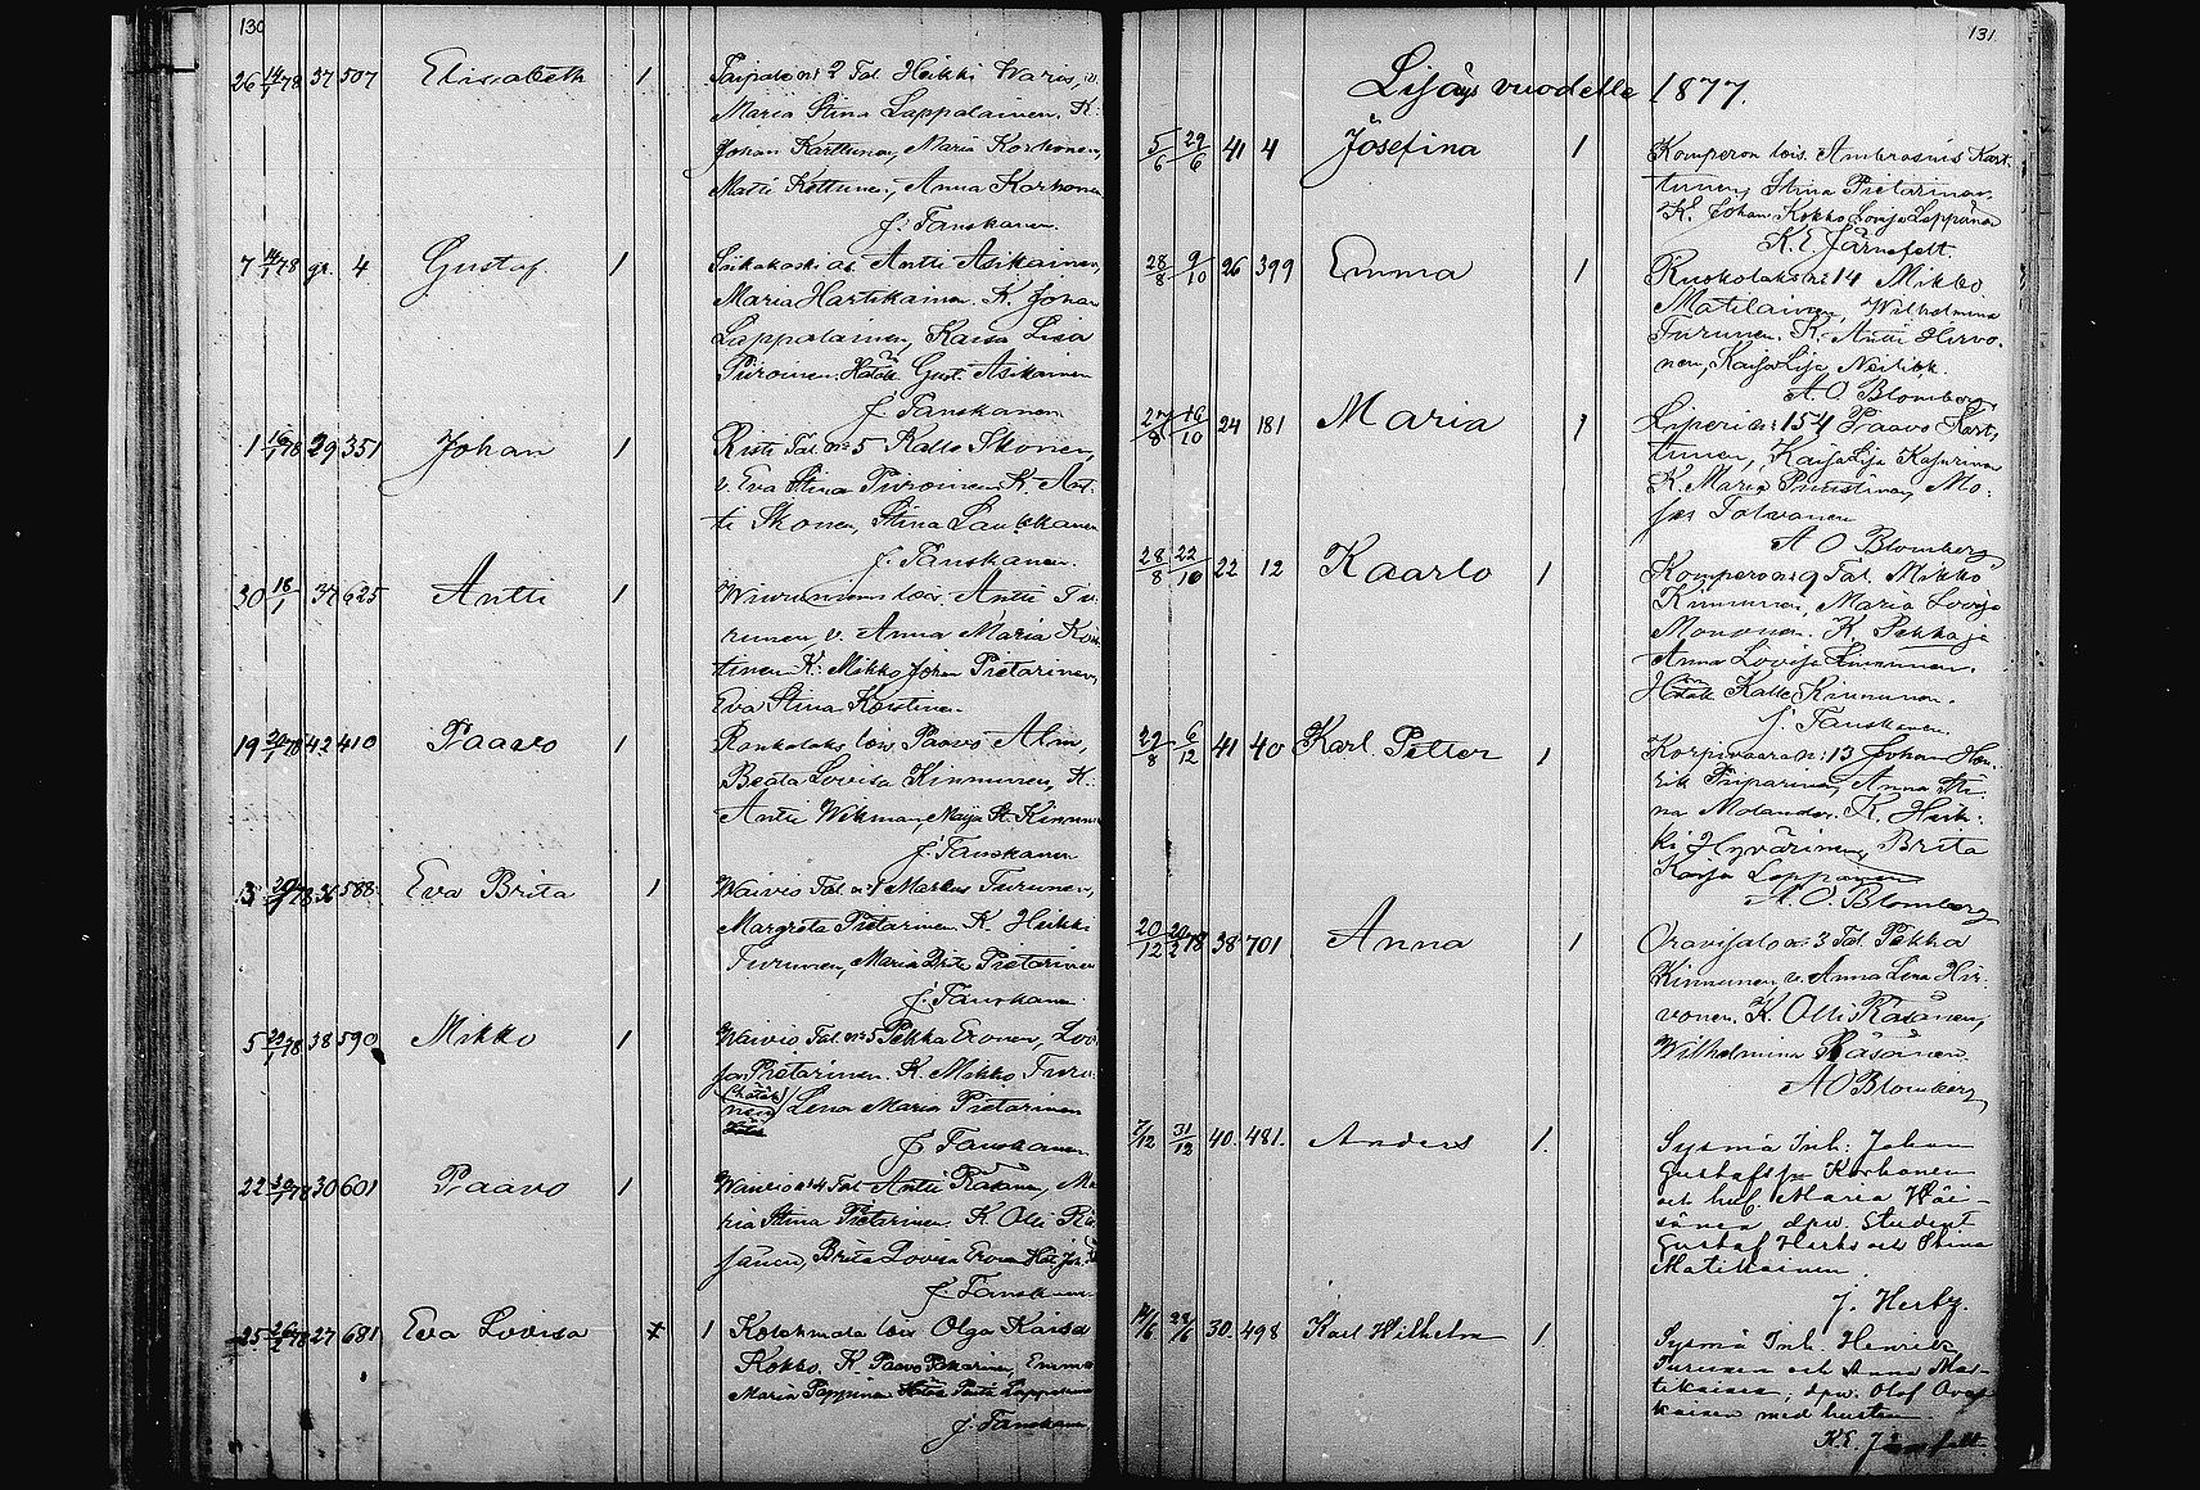 130
26 14/1 78 37 507 Elisabeth 1 Taipale № 2 Tal. Heikki Waris, v.
Maria Stina Lappalainen. K.
Johan Karttunen, Maria Korhonen,
Matti Kettunen, Anna Korhonen
J. Tanskanen.
7 14/1 78 gr. 4 Gustaf. 1 Siikakoski as. Antti Asikainen,
Maria Hartikainen. K. Johan
Lappalainen, Kaisa Lisa
Piiroinen. Hätäk. Gust. Asikainen
J. Tanskanen
1 16/1 78 29 351 Johan 1 Risti Tal. № 5 Kalle Ikonen,
v. Eva Stina Piiroinen K. Ant-
ti Ikonen, Stina Laukkanen
J. Tanskanen.
30 18/1 37 625 Antti 1 lois. Antti Tu-
runen, v. Anna Maria
tinen K: Mikko Johan Pietarinen,
Eva Stina
19 78 42 410 Paavo 1 lois Paavo Alm,
Beata Lovisa Kinnunen, K:
Antti Wikman, Maija St. Kinnu
J. Tanskanen
78 36 588 Eva Brita 1 Waivio Tal. № 1 Markus Turunen,
Margreta Pietarinen. K. Heikki
Turunen, Maria Brita Pietarinen
J. Tanskanen
5 78 38 590 Mikko 1 Waivio Tal. № 5 Pekka Eronen, Lovi
sa Pietarinen. K. Mikko Turu-
(hätäk)
nen Lena Maria Pietarinen
J. Tanskanen
22 78 30 601 Paavo 1 Waivio № 4 Tal Antti Räsänen, Ma
ria Stina Pietarinen. K. Olli Rä
sänen, Brita Lovisa Eronen Hät. Joh.
J. Tanskanen
25 78 27 681 Eva Lovisa 1 Kolehmala lois Olga Kaisa
Kokko. K. Paavo Pekarinen, Emma
Maria
J. Tanskanen
131
Lisäys vuodelle 1877.
5/6 29/6 41 4 Josefina 1 Komperon lois. Ambrosius Kart-
tunen, Stina Pietarinen.
K. Johan Kokko Lovisa Leppänen
K. E. Järnefelt.
28/8 9/10 26 399 Emma 1 Ruokolaks № 14 Mikko
Matilainen, Wilhelmina
Turunen. K. Antti Hirvo-
nen, Kaisa Lisa
A. O Blomberg
27/8 16/10 24 181 Maria 1 Liperi № 154 Paavo Kart-
tunen, Kaisa Lisa Kasurinen
K. Maria Puustinen, Mo-
ses Tolvanen
A O Blomberg
28/8 22/10 22 12 Kaarlo 1 Kompero № 9 Tal. Mikko
Kinnunen, Maria Lovisa
Mononen. K. Pekka ja
Anna Lovisa Kinnunen.
Hätäk Kalle Kinnunen.
J. Tanskanen.
29/8 6/12 41 40 Karl Petter 1 Korpivaara N: 13 Johan Hen-
rik Piiparinen, Anna Sti-
na Molander. K. Heik-
ki Hyvärinen, Brita
Kaisa Leppänen
A. O. Blomberg
20/12 20/2 78 38 701 Anna 1 Oravisalo № 3 Tal. Pekka
Kinnunen v. Anna Lena Hir-
vonen. K. Olli Räsänen,
Wilhelmina Räsänen.
A O Blomberg
7/12 31/12 40. 481. Anders 1. Sysmä Inh: Johan
Gustafsson Korhonen
och hust. Maria Häi-
sänen, dpw. Student
Gustaf Hertz och Stina
Matikainen.
J. Hertz.
14/6 28/6 30. 498 Karl Wilhelm 1. Sysmä Inh. Henrik
Turunen och Anna Mar-
tikainen, dpw. Olof
kainen med hustru.
K. E. Järnefelt.